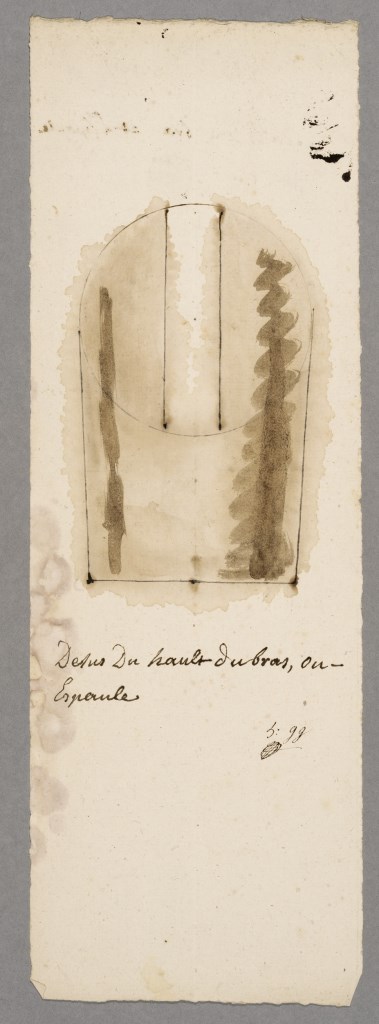 Desus Du hault du bras, ou-
Espaule
h: 99